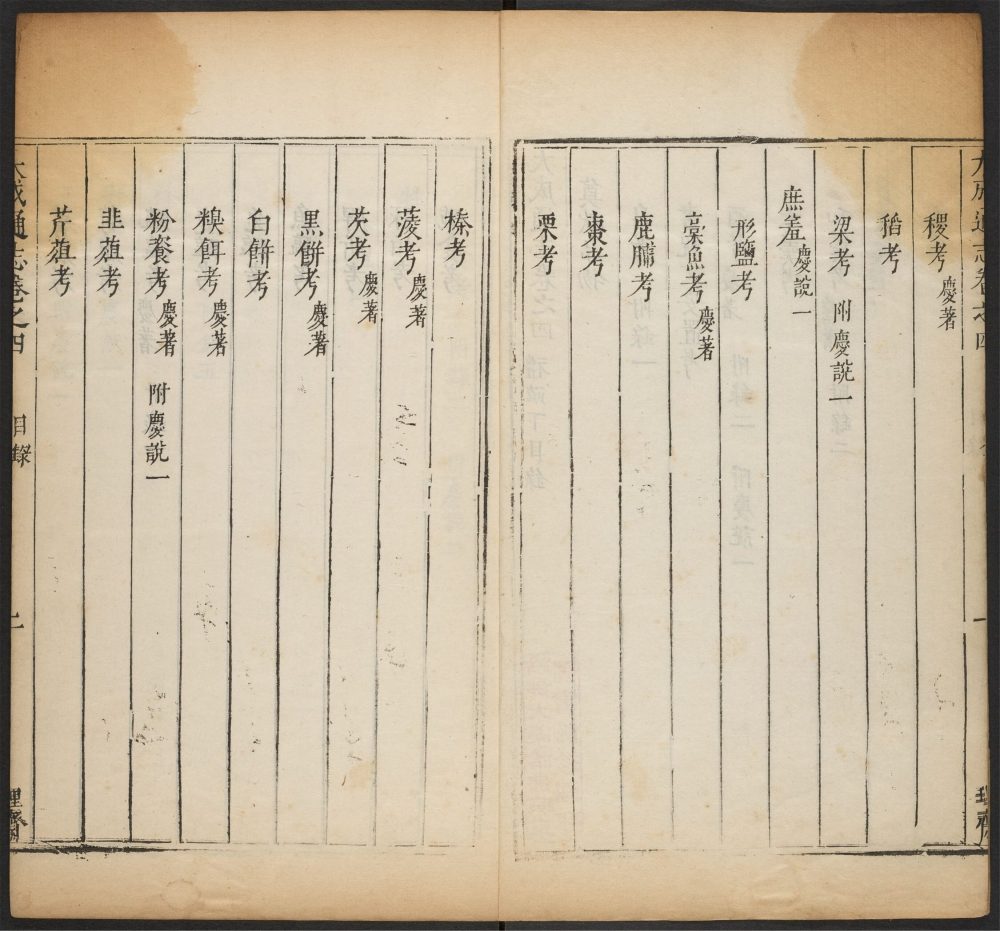 大成通志卷之四
一
理齋
稷考 慶著
稻考
梁考 附慶說一
庶羞 慶說一
形鹽考
稾魚考 慶著
鹿脯考
棗考
栗考
榛考
菱考 慶著
芡考 慶著
黑餅考 慶著
白餅考
糗餌考 慶著
粉餈考 慶著 附慶說一
韭菹考
芹菹考
大成通志卷之四
目錄
二
理齋